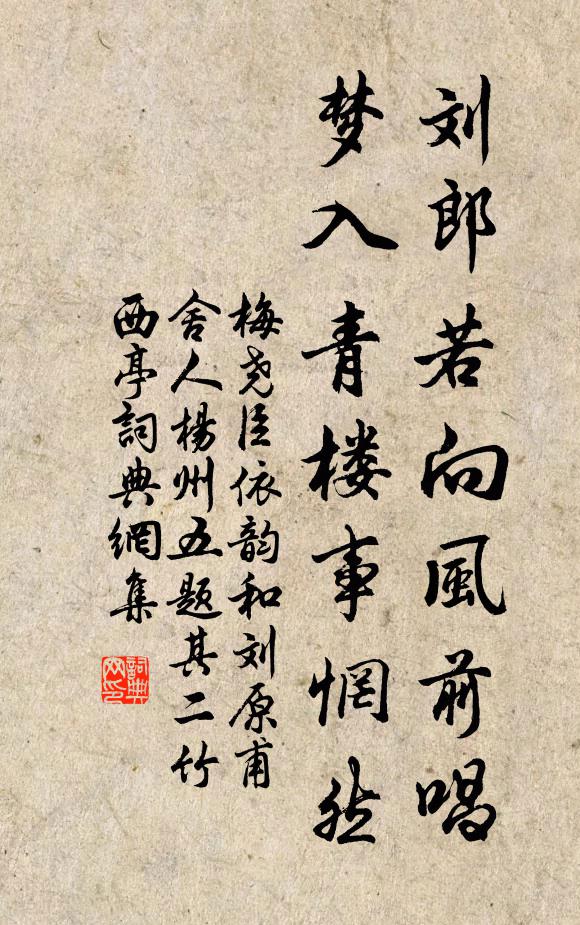 刘郎若向風前唱
梦入青楼事惘然
梅尧臣依韵和刘原甫
舍人楊州五题其二竹
西亭詞典網集
詞典网